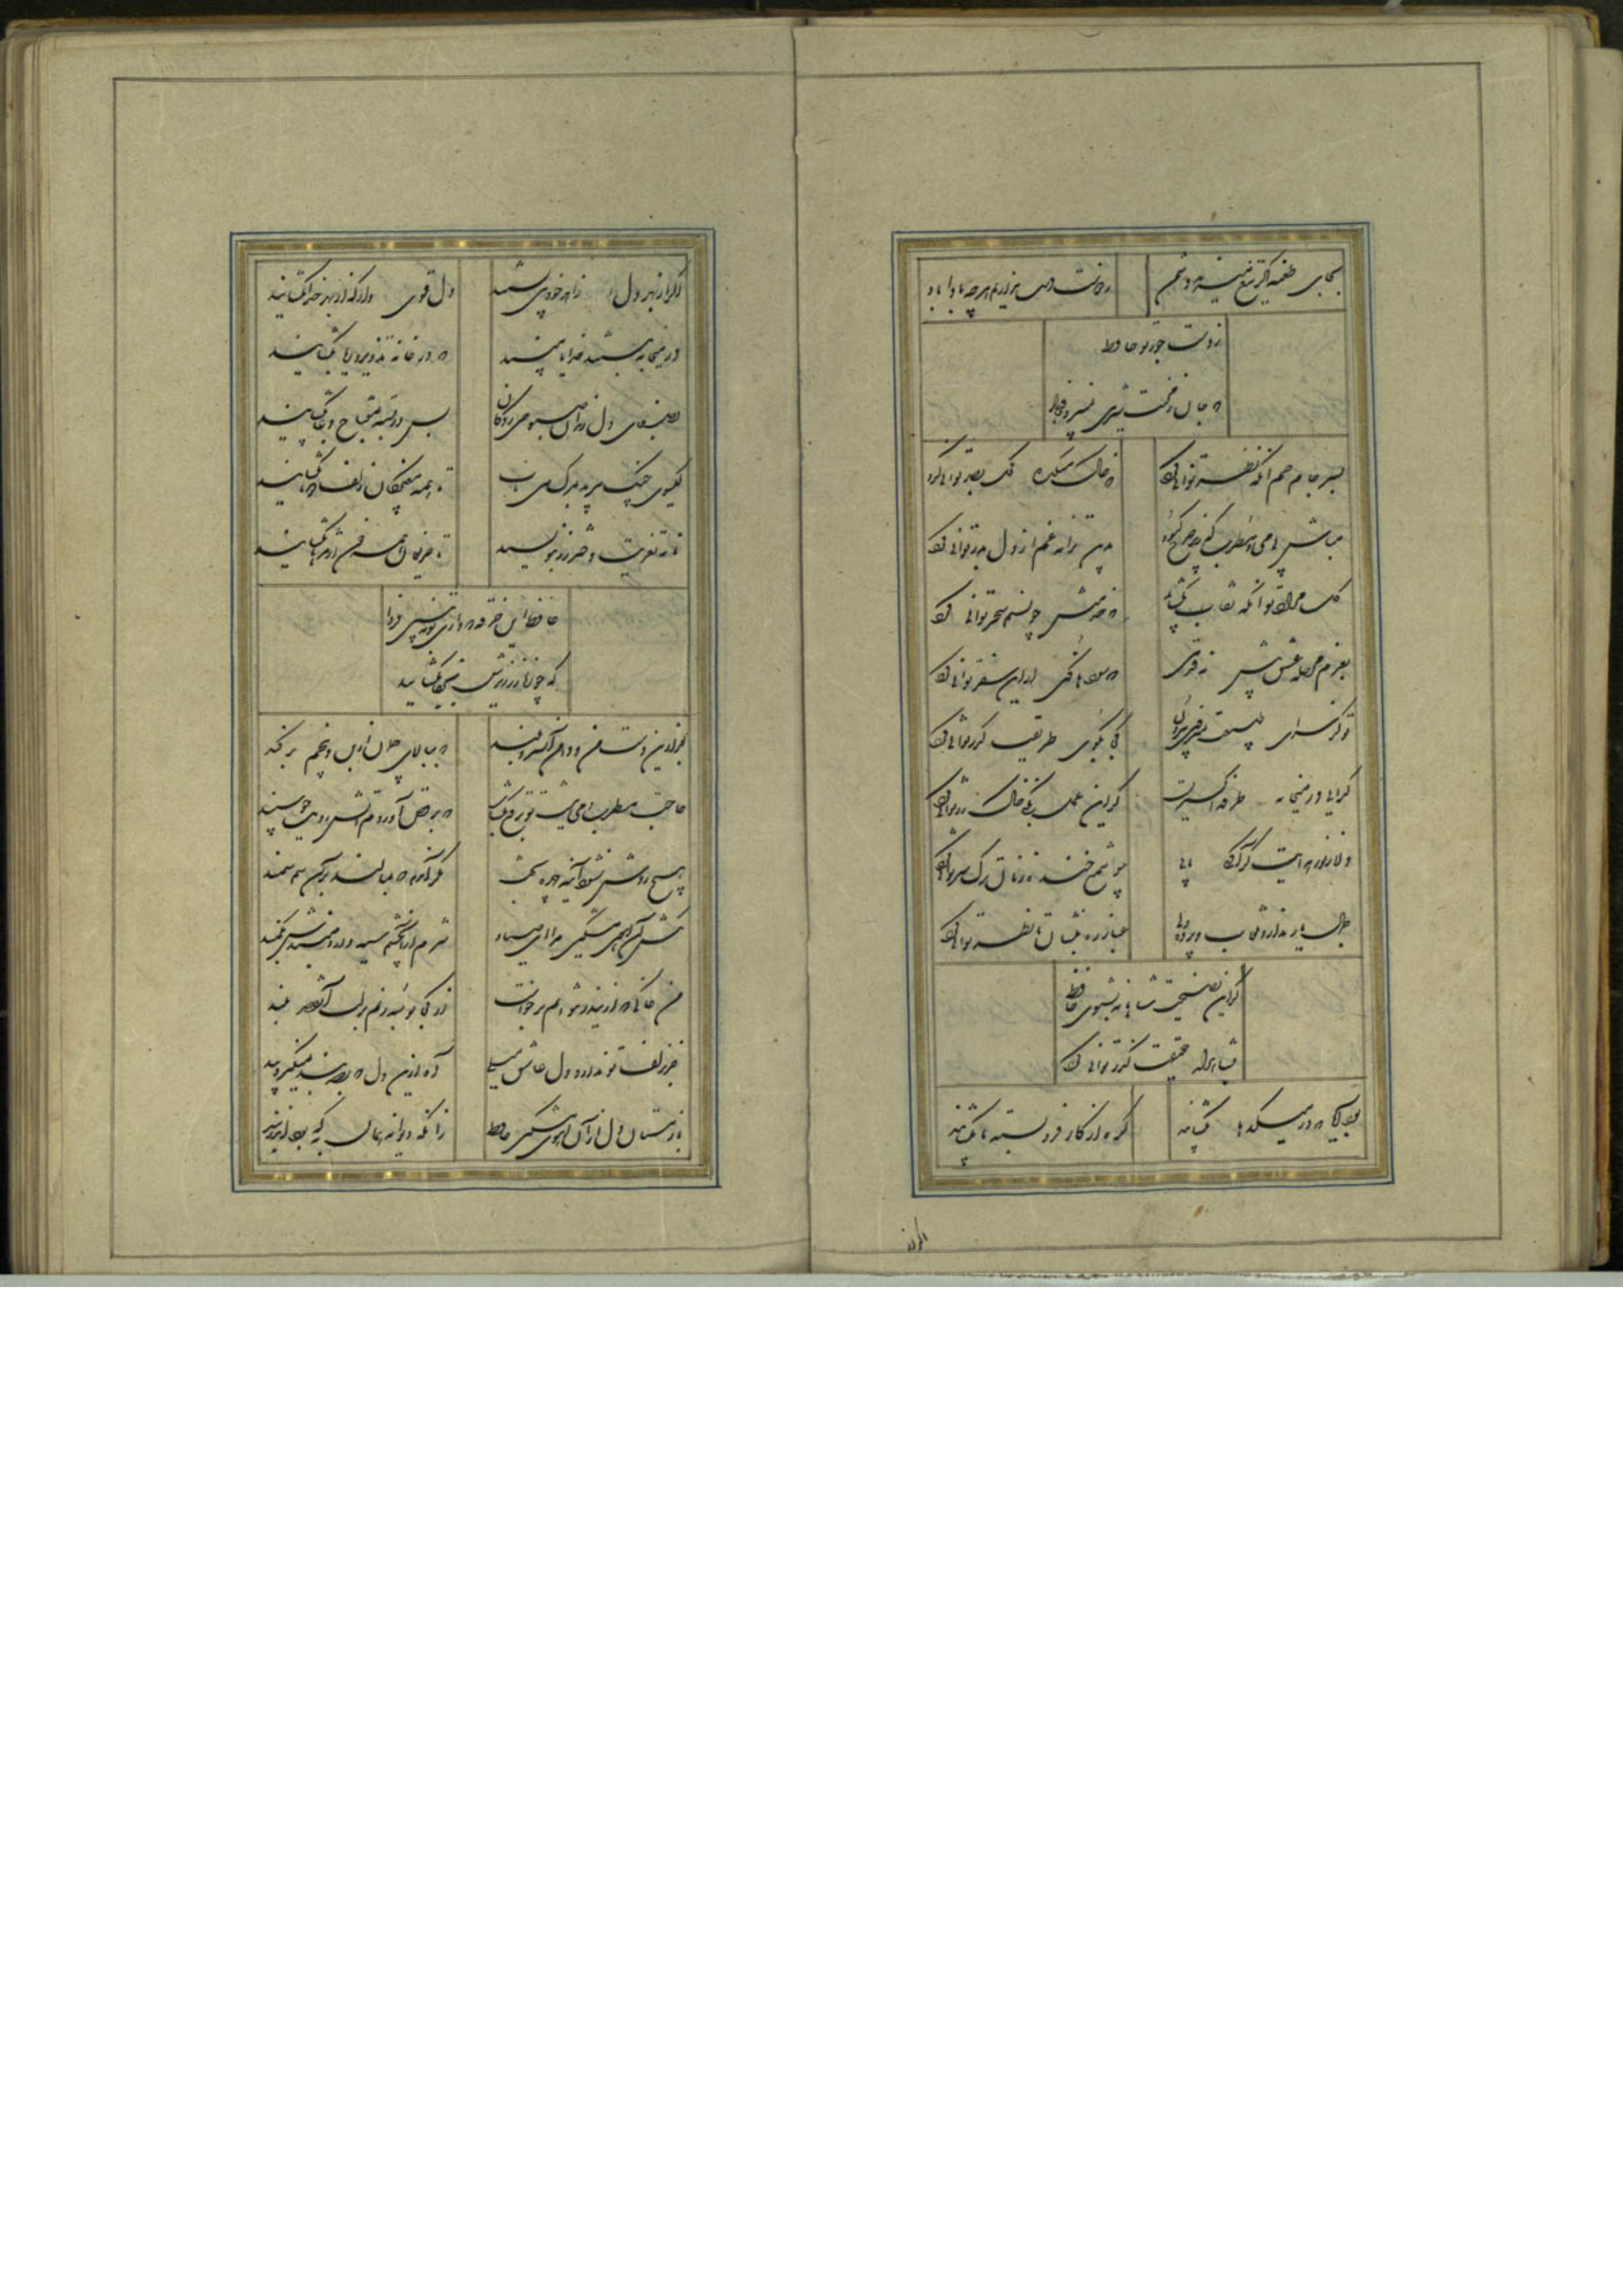 بجای طعنه اگر تیغ میزند دشمن
ز دوست دست نداریم هرچه بادا باد
ز دست جور تو حافظ
که جان ز محنت شیرین
بسر جام جم آنگه نظر توانی کرد
که خاک میکده کحل بصر توانی کرد
مباش بی می و مطرب که زیر چرخ کبود
بدین ترانه غم از دل بدر توانی کرد
گل مراد تو آنگه نقاب بگشاید
که خدمتش چو نسیم سحر توانی کرد
بعزم مرحله عشق پیش نه قدمی
که سودها کنی ار این سفر توانی کرد
تو کز سرای طبیعت نمیروی بیرون
کجا بکوی طریقت گذر توانی کرد
گدایی در میخانه طرفه اکسیریست
گر این عمل بکنی خاک زر توانی کرد
دلا ز نور هدایت گر آگهی یابی
چو شمع خنده زنان ترک سر توانی کرد
جمال یار ندارد نقاب و پرده ولی
غبار ره بنشان تا نظر توانی کرد
گر این نصیحت شاهانه بشنوی حافظ
بشاهراه حقیقت گذر توانی کرد
بود آیا که در میکدها بگشایند
گره از کار فرو بسته ما بگشایند
اگر از
اگر از بهر دل زاهد خودبین بستند
دل قوی دار که از بهر خدا بگشایند
در میخانه ببستند خدایا مپسند
که در خانه تزویر و ریا بگشایند
بصفای دل رندان صبوحی زدگان
بس در بسته بمفتاح دعا بگشایند
گیسوی چنگ ببرید بمرگ می ناب
تا همه مغبچگان زلف دوتا بگشایند
نامه تعزیت دختر رز بنویسید
تا حریفان همه خون از مژها بگشایند
حافظ این خرقه که داری تو ببینی فردا
که چه زنار ز زیرش بجفا بگشایند
بعد ازین دست من و دامن آن سرو بلند
که ببالای چمان از بن و بیخم برکند
حاجت مطرب و می نیست تو برقع بگشا
که برقص آوردم آتش رویت چو سپند
هیچ روئی نشود آینه چهره بخت
مگر آنروی که مالند بر آن سم سمند
مکش آن آهوی مشکین مرا ای صیاد
شرم از آن چشم سیه دار و مبندش بکمند
من خاکی که ازین در نتوانم برخاست
از کجا بوسه زنم بر لب آن قصر بلند
جز زلف تو ندارد دل عاشق میلی
آه ازین دل که بصد بند نمیگیرد پند
باز مستان دل از آن گیسوی مشکین حافظ
زانکه دیوانه همان به که بود اندر بند